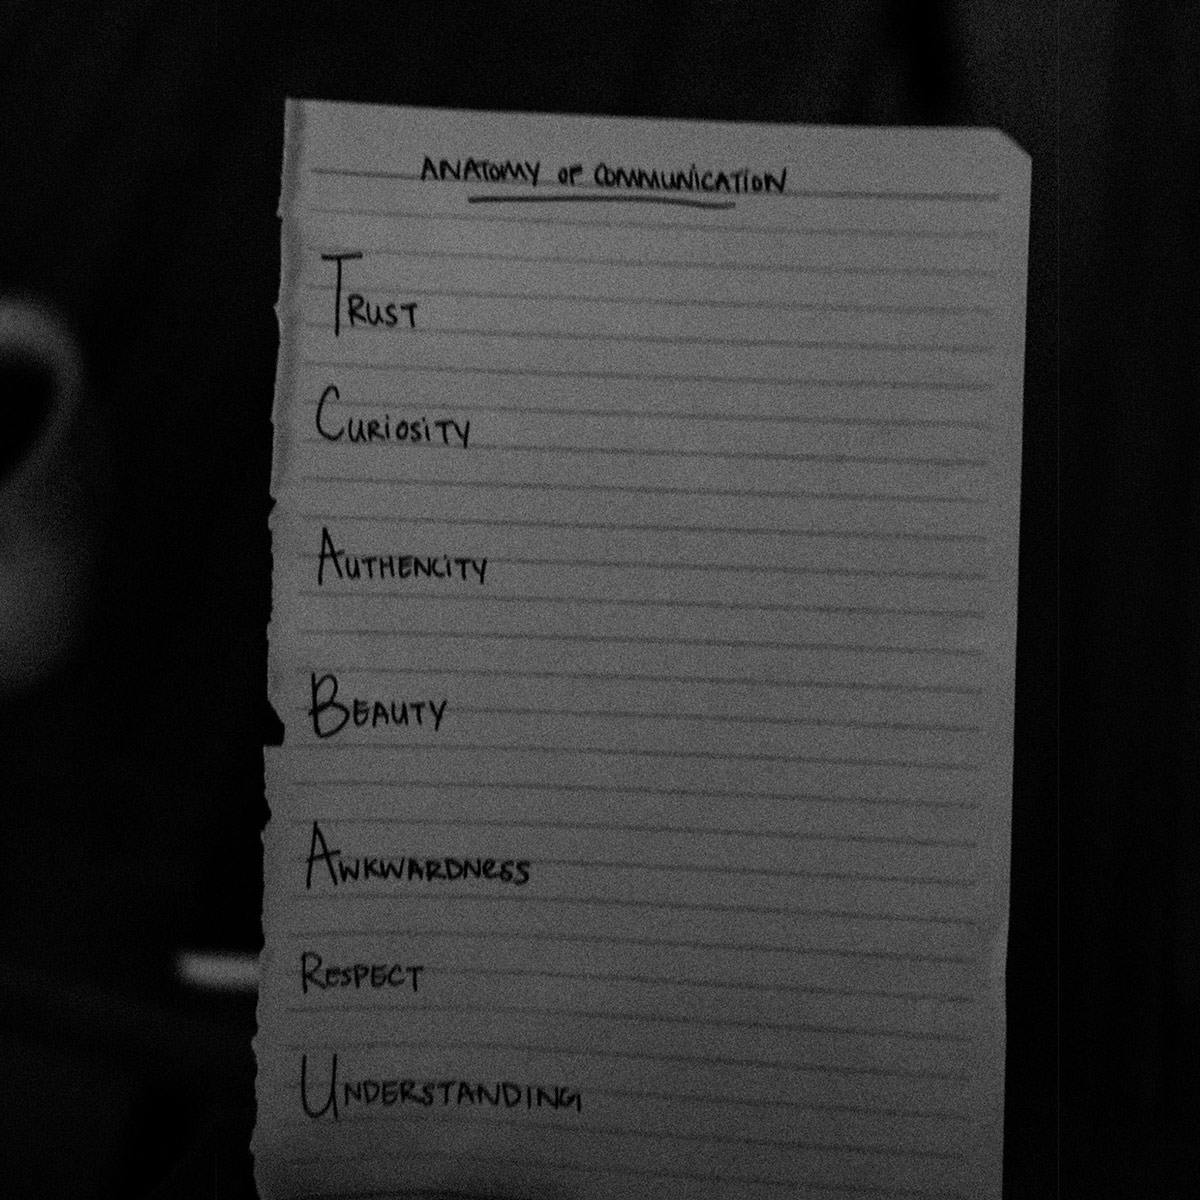 ANATOMY OF COMMUNICATION
TRUST
CURIOSITY
AUTHENCITY
BEAUTY
AWKWARDNESS
RESPECT
UNDERSTANDING